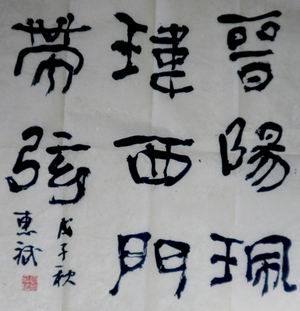 晉陽珮
瑋西門
帶弦
戊子秋
惠斌